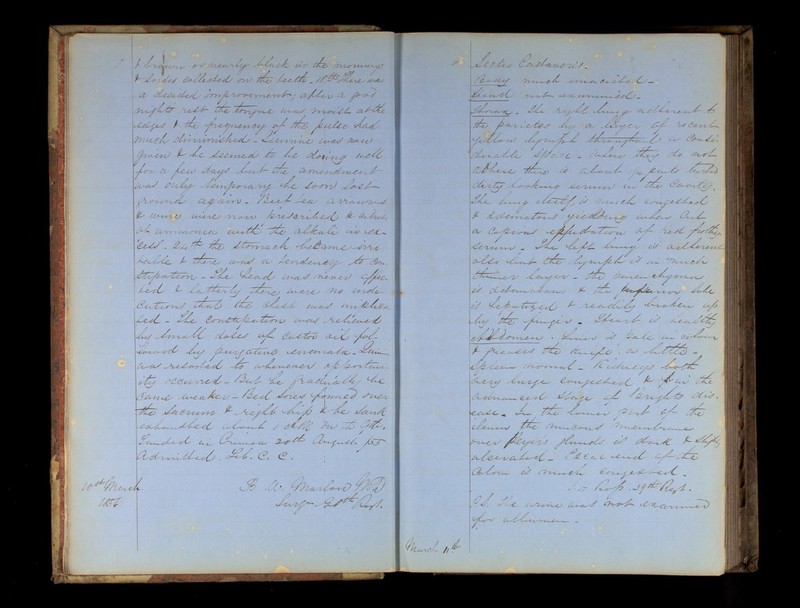 & brown or nearly black in the morning
& Sordes collected on the teeth. 18th There was
a decided improvement; after a good
nights rest the tongue was moist at the
edges & the frequency of the pulse had
much diminished. Quinine was now
given & he seemed to be doing well
for a few days but the amendment
was only temporary he soon lost
ground again. Beef tea arrowroot
& wine were now prescribed &
of ammonia with the alkali in ex-
cess. 24th the stomach became irri-
table & there was a tendency to con-
stipation - The head was never affec-
ted & latterly there were no indi-
cations that the chest was implica-
ted - The constipation was relieved
by small doses of castor oil fol-
lowed by purgative enemata.
was resorted to whenever opportun-
ity occurred - But he gradually be-
came weaker - Bed Sores formed over
the Sacrum & right hip & he sank
exhausted about 1 o'clk on the 9th.
Landed in Crimea 20th August
Admitted. Feb. C. C.
10th March
1856
Marlow MD
Surgn. Regt.
March 11th
Sectio Cadaveris.
Body much emaciated -
Head not examined.
Thorax. The right lung adherent to
the parietes by a layer of recent
yellow lymph throughout a consi-
derable space - where they do not
adhere there is about pints turbid
dirty looking serum in the Cavity.
The lung itself is much congested
& oedematous yielding when cut
a copious exudation of red frothy
serum - The left lung is adherent
also but the lymph is in much
thinner layer - the parenchyma
is oedematous & the lobe
is hepatized & readily broken up
by the finger - Heart is healthy
Abdomen. Liver is pale in colour
& greases the knife a little -
Spleen normal - Kidneys both
very large congested & in the
advanced Stage of Brights dis-
ease - In the lower part of the
ileum the mucous membrane
over Peyers glands is dark & slightly
ulcerated - Caecal end of the
Colon is much congested.
Regt.
P.S. The urine was not examined
for albumen -